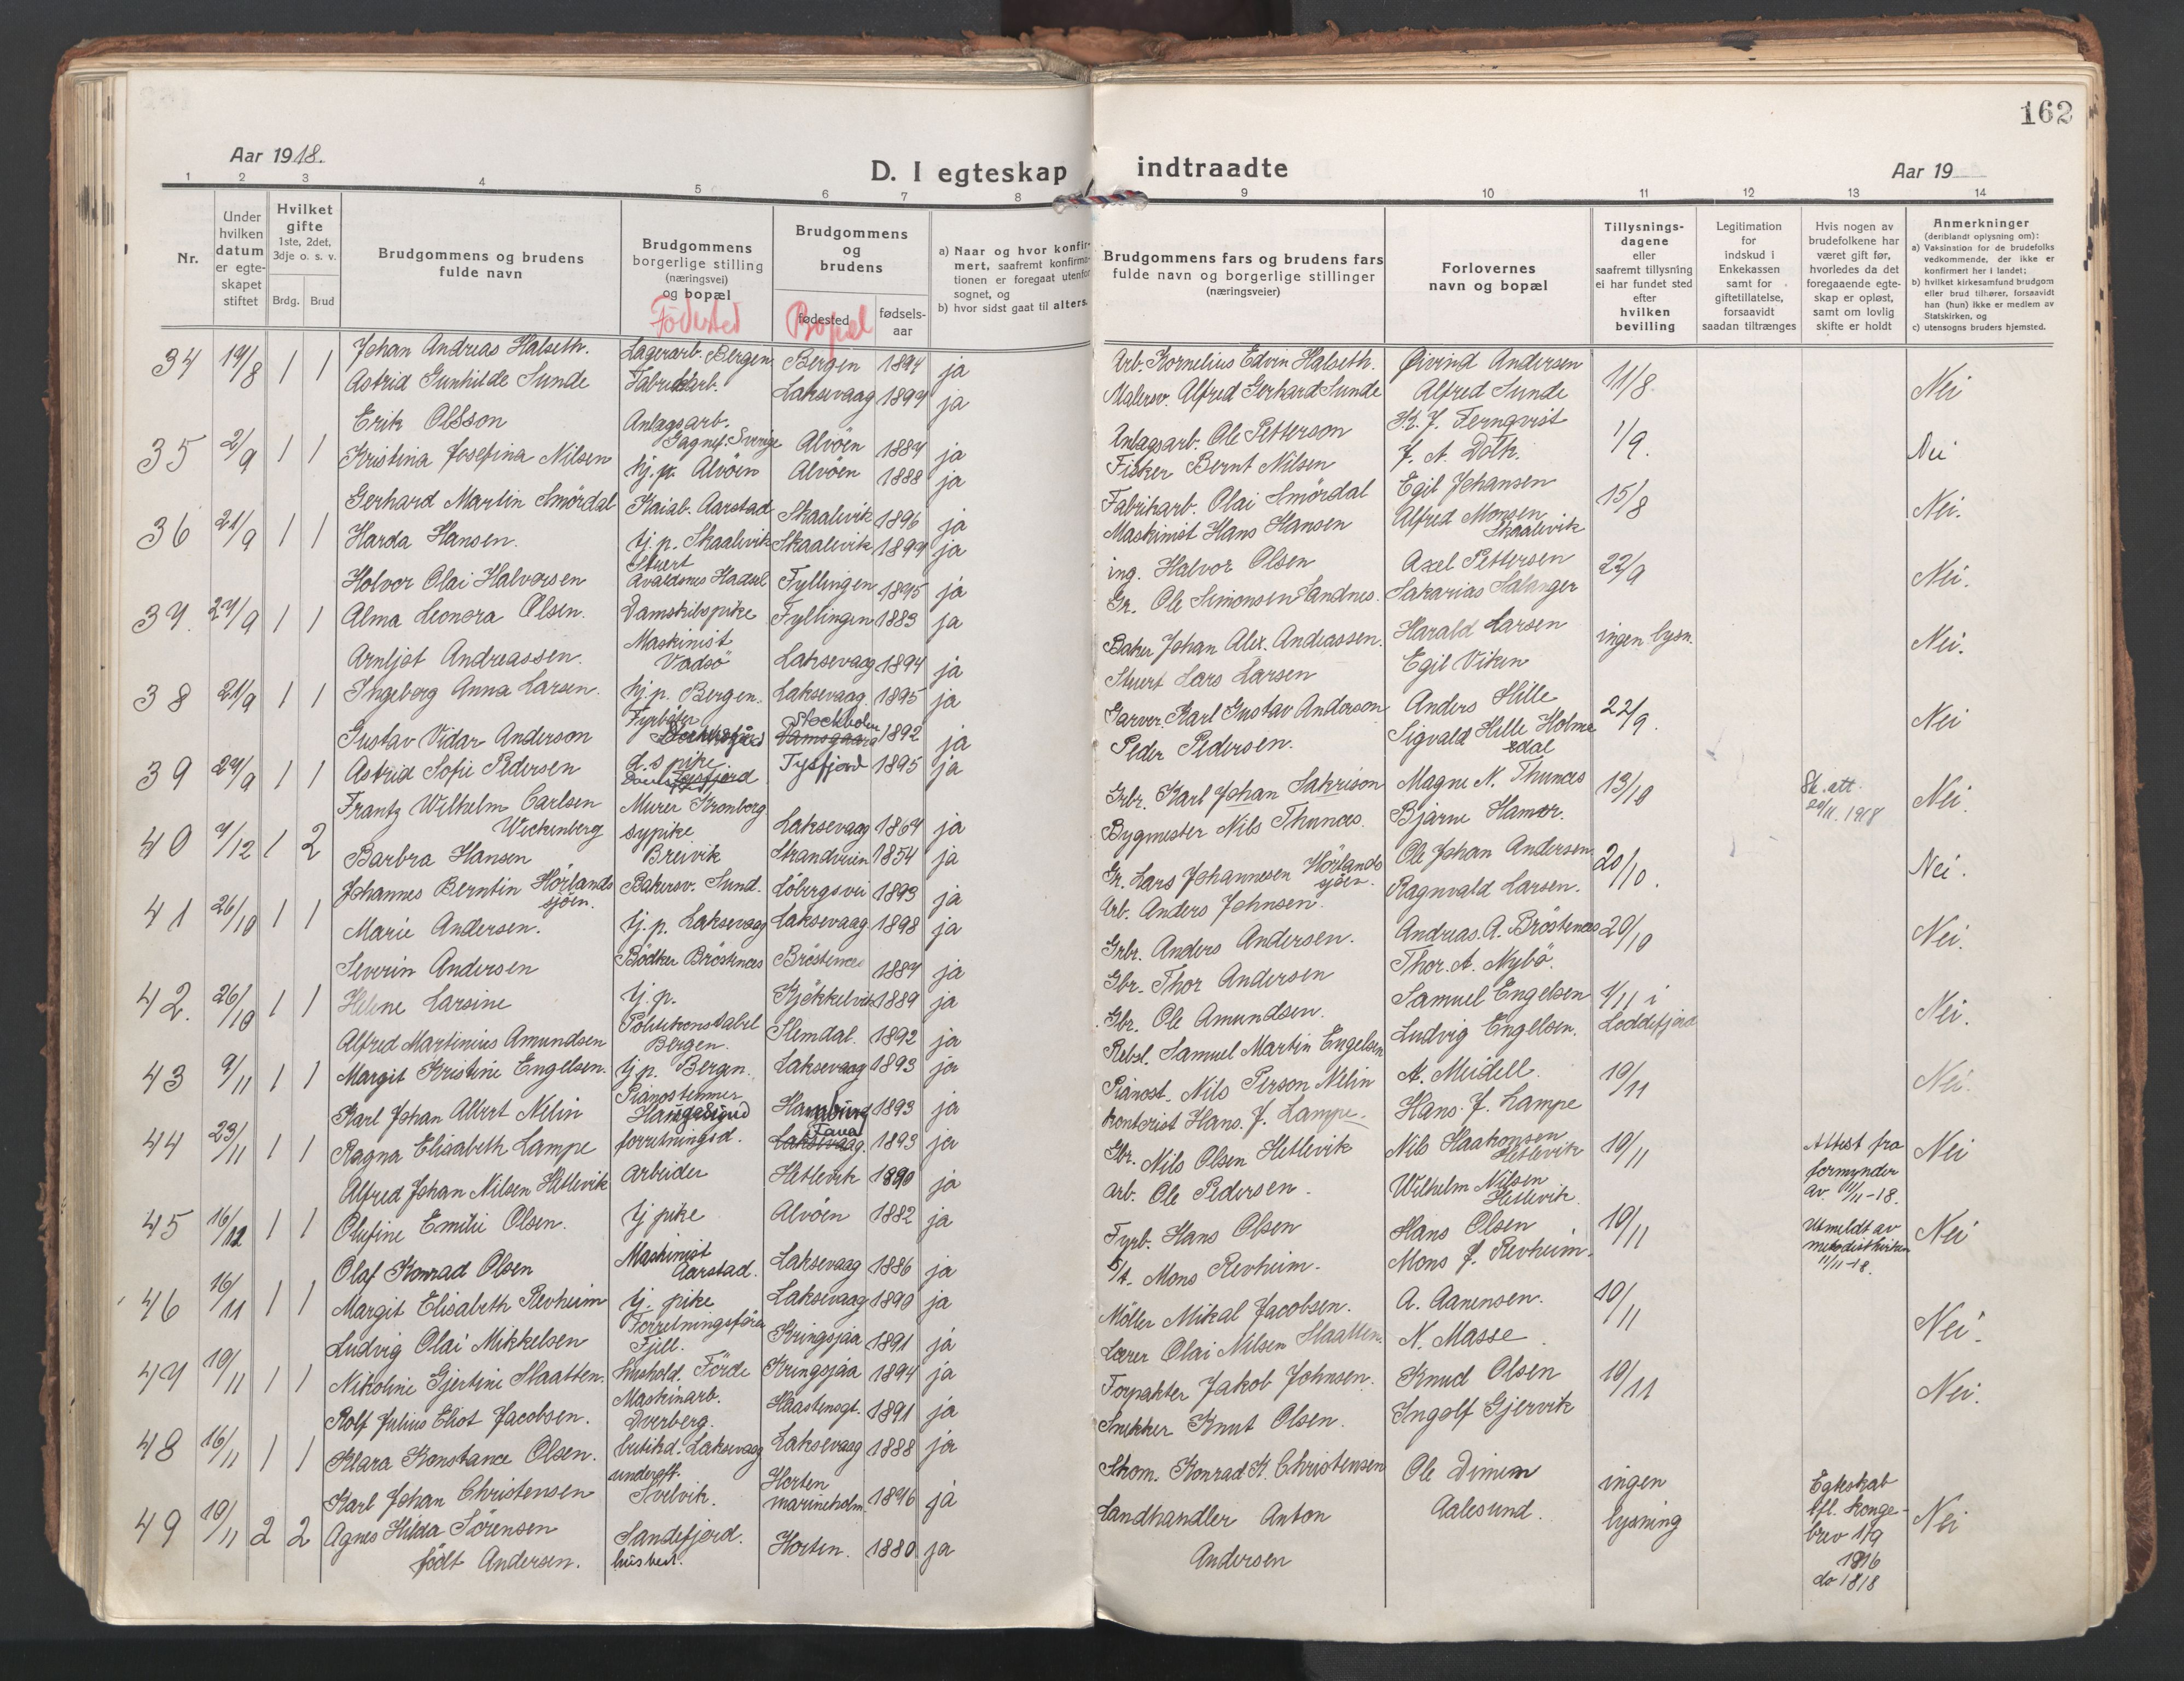 162
Aar 1918.
D. I egteskap indtraadte
Aar 19
1 2 3 4 5 6 7 8 9 10 11 12 13 14
Nr.
Under hvilken datum er egteskapet stiftet
Hvilket gifte 1ste, 2det, 3dje o. s. v.
Brdg. Brud
Brudgommens og brudens fulde navn
Brudgommens borgerlige stilling (næringsvei) og bopæl
Fødested
Brudgommens og brudens
fødested
Bopæl
fødsels-aar
a) Naar og hvor konfirmert, saafremt konfirmationen er foregaat utenfor sognet, og
b) hvor sidst gaat til alters.
Brudgommens fars og brudens fars fulde navn og borgerlige stillinger (næringsveier)
Forlovernes navn og bopæl
Tillysningsdagene eller saafremt tillysning ei har fundet sted efter hvilken bevilling
Legitimation for indskud i Enkekassen samt for giftetillatelse, forsaavidt saadan tiltrænges
Hvis nogen av brudefolkene har været gift før, hvorledes da det foregaaende egteskap er opløst, samt om lovlig skifte er holdt
Anmerkninger (deriblandt oplysning om):
a) Vaksination for de brudefolks vedkommende, der ikke er konfirmert her i landet;
b) hvilket kirkesamfund brudgom eller brud tilhører, forsaavidt han (hun) ikke er medlem av Statskirken, og
c) utensogns bruders hjemsted.
34 19/8 1 1 Johan Andreas Halseth. Lagerarb. Bergen Bergen 1894 ja Arb. Kornelius Edvin Halseth. Øivind Andersen 11/8 Nei
Astrid Gunhilde Sunde Fabrikarb. Laksevaag 1897 ja Malersv. Alfred Gerhard Sunde Alfred Sunde
35 2/9 1 1 Erik Olsson Anlagsarb. Gagnef. Sverige Alvøen 1884 ja Anlagsarb. Ole Petterson K. J. Fernqvist 1/9. Nei
Kristina Josefina Nilsen tj. p. Alvøen Alvøen 1888 ja Fisker Bernt Nilsen J. A. Dolk.
36 21/9 1 1 Gerhard Martin Smördal Kaiab. Aarstad Skaalevik 1896 ja Fabrikarb. Olai Smördal Egil Johansen 15/8 Nei.
Harda Hansen. tj. p. Skaalevik Skaalevik 1897 ja Maskinist Hans Hansen Alfred Monsen Skaalevik
37. 27/9 1 1 Holvor Olai Halvorsen Stuert Avaldsnes Hadsel Fyllingen 1895 ja ing. Halvor Olsen Axel Pettersen 22/9 Nei.
Alma Leonora Olsen. Damskibspike Fyllingen 1883 ja Gr. Ole Simonsen Sandnes. Sakarias Salanger
38 21/9 1 1 Arnljot Andreassen. Maskinist Vadsö Laksevaag 1894 ja Baker Johan Alex. Andreassen. Harald Larsen ingen lysn. Nei.
Ingeborg Anna Larsen. tj. p. Bergen. Laksevaag. 1895 ja Stuert Lars Larsen Egil Viken
39 27/9 1 1 Gustav Vidar Anderson Fyrbøter Stockholm 1892 ja Garver Karl Gustav Anderson Anders Hille 22/9. Nei
Astrid Sofie Pedersen d. s pike. Tysfjord 1895 ja Peder Pedersen. Sigvald Hille Holmedal
40 7/12 1 2 Frantz Wilhelm Carlsen Wickenberg Murer Kronborg Laksevaag 1864 ja Grbr. Karl Johan Sakrison Magne N. Thunæs 13/10 Sk. att. 20/11. 1918 Nei.
Barbra Hansen sypike Breivik Strandveien 1854 ja Bygmester Nils Thunæs. Bjarne Hamer.
41 26/10 1 1 Johannes Berntin Hörlandsjöen. Bakersv. Sund. Löbergsvei 1893 ja Gr. Lars Johannesen Hörlandsjöen. Ole Johan Andersen 20/10. Nei.
Marie Andersen. tj. p. Laksevaag Laksevaag 1898 ja Arb. Anders Johnsen. Ragnvald Larsen.
42. 26/10 1 1 Severin Andersen Bödker Bröstenæs Bröstenæs 1887 ja Grbr. Anders Andersen. Andreas. A. Bröstenæs 20/10 Nei.
Helene Larsine tj. p. Kjökkelvik 1889 ja Gbr. Thor Andersen Thor. A. Nybö.
43 9/11 1 1 Alfred Martinius Amundsen Politikonstabel Bergen. Slemdal. 1892 ja Gbr. Ole Amundsen. Samuel Engelsen 1/11 i Loddefjord Nei.
Margit Kristine Engelsen. tj p. Bergen. Laksevaag 1893 ja Rebsl. Samuel Martin Engelsen Ludvig Engelsen.
44 23/11 1 1 Karl Johan Albert Nelin Pianostemmer Haugesund Hamburg 1893 ja Pianost. Nils Person Nelin A. Meidell. 10/11 Nei.
Ragna Elisabeth Lampe forretningsd. Laksevaag. Fana 1893 ja kontorist Hans. J. Lampe. Hans. J. Lampe
45 16/12 1 1 Alfred Johan Nilsen Hetlevik arbeider Hetlevik 1890 ja Gbr. Nils Olsen Hetlevik Nils Haakonsen Hetlevik 10/11 Attest fra formynder av. 11/11-18. Nei
Olufine Emilie Olsen. tj pike Alvöen 1882 ja arb. Ole Pedersen. Wilhelm Nilsen Hetlevik.
46 16/11 1 1 Olaf Konrad Olsen Maskinist Aarstad. Laksevaag 1886 ja Fyrb. Hans Olsen Hans Olsen 10/11 Utmeldt av metodistkirken 11/11-18. Nei
Margit Elisabeth Revheim tj. pike Laksevaag 1890 ja Mons Revheim. Mons J. Revheim.
47 10/11 1 1 Ludvig Olai Mikkelsen Forretningsfören Fjell. Kringsjaa 1891 ja Möller Mikal Jacobsen. A. Aanensen. 10/11 Nei.
Nikoline Gjertine Slaatten. hushold. Förde Kringsjaa 1894 ja Lærer Olai Nilsen Slaatten. N. Masse
48 16/11 1 1 Rolf Julius Eliot Jacobsen. Maskinarb. Dverberg. Haastensgt. 1891 ja Forpakter Jakob Johnsen. Knud Olsen 10/11 Nei.
Klara Konstance Olsen. butikd. Laksevaag Laksevaag 1888 ja Snekker Knut Olsen. Ingolf Gjervik
49 10/11 2 2 Karl Johan Christensen underoff. Svelvik. Horten marineholm. 1876 ja Skom. Konrad K. Christensen Ole Dimem ingen lysning Egteskab tfl. kongebrev 1/9 1916 do 1818 Nei
Agnes Hilda Sörensen født Andersen. Sandefjord. husbest. Horten. 1880 ja Landhandler Anton Andersen Aalesund.